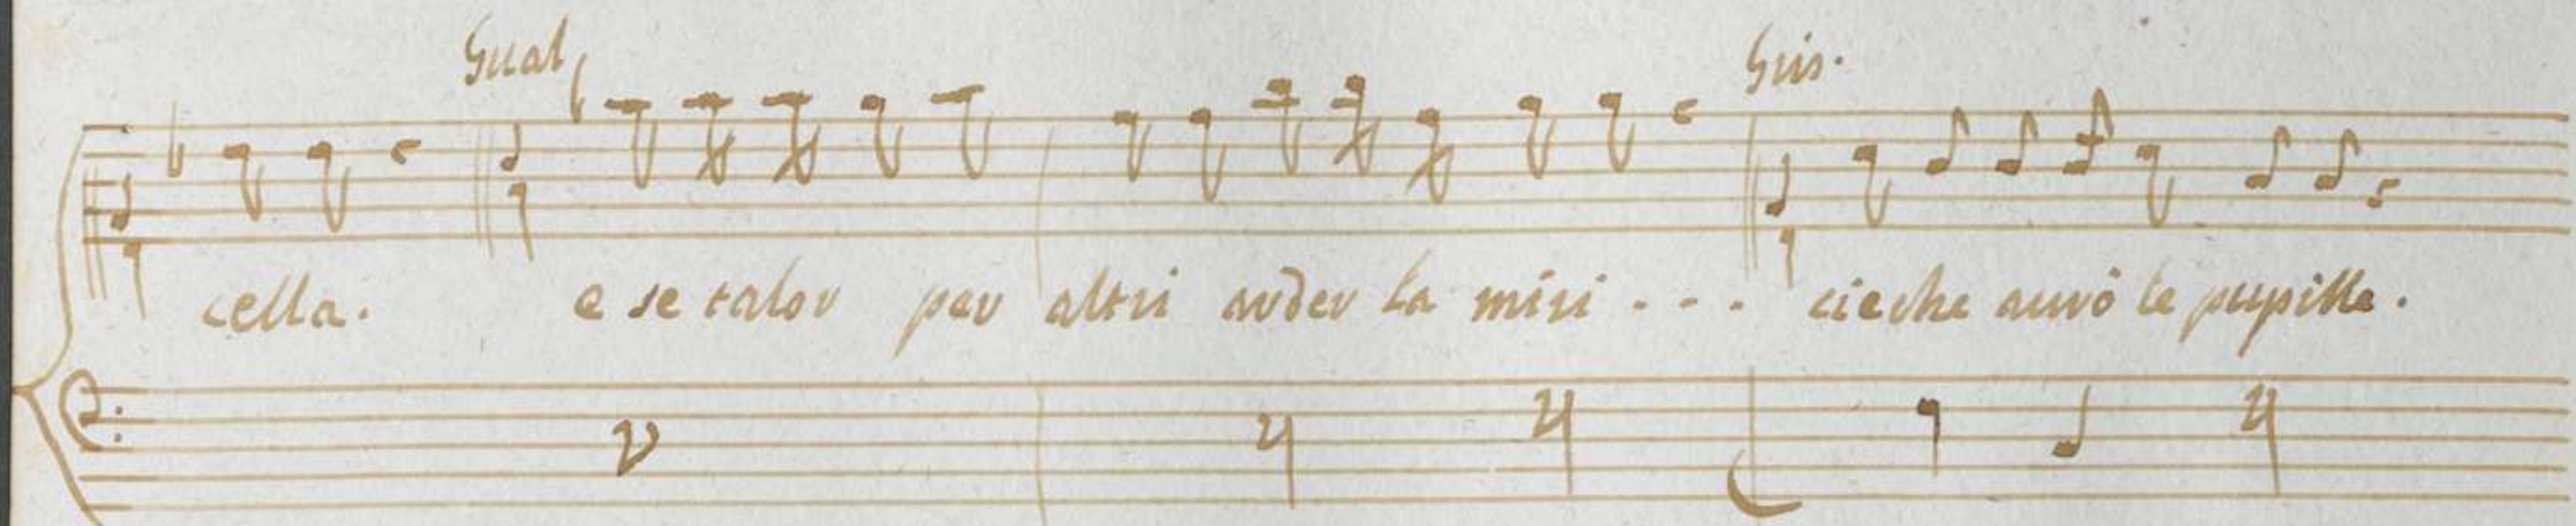 Gual. Gris.
cella. e se talor per altri arder la miri - - - cieche avrò le pupille.